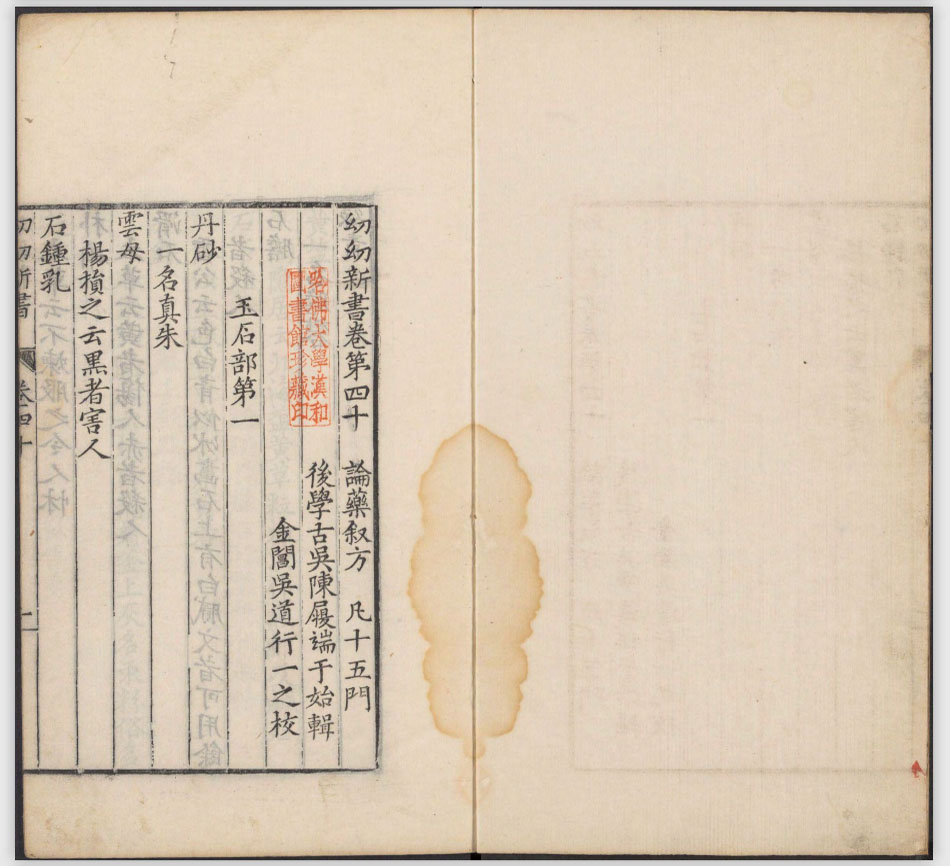 幼幼新書卷第四十 論藥叙方 凡十五門
後學古吳陳履端于始輯
金閶吳道行一之校
哈佛大學漢和
圖書館珍藏印
玉石部第一
丹砂
一名真朱
雲母
楊損之云黑者害人
石鍾乳
幼幼新書 卷四十 一